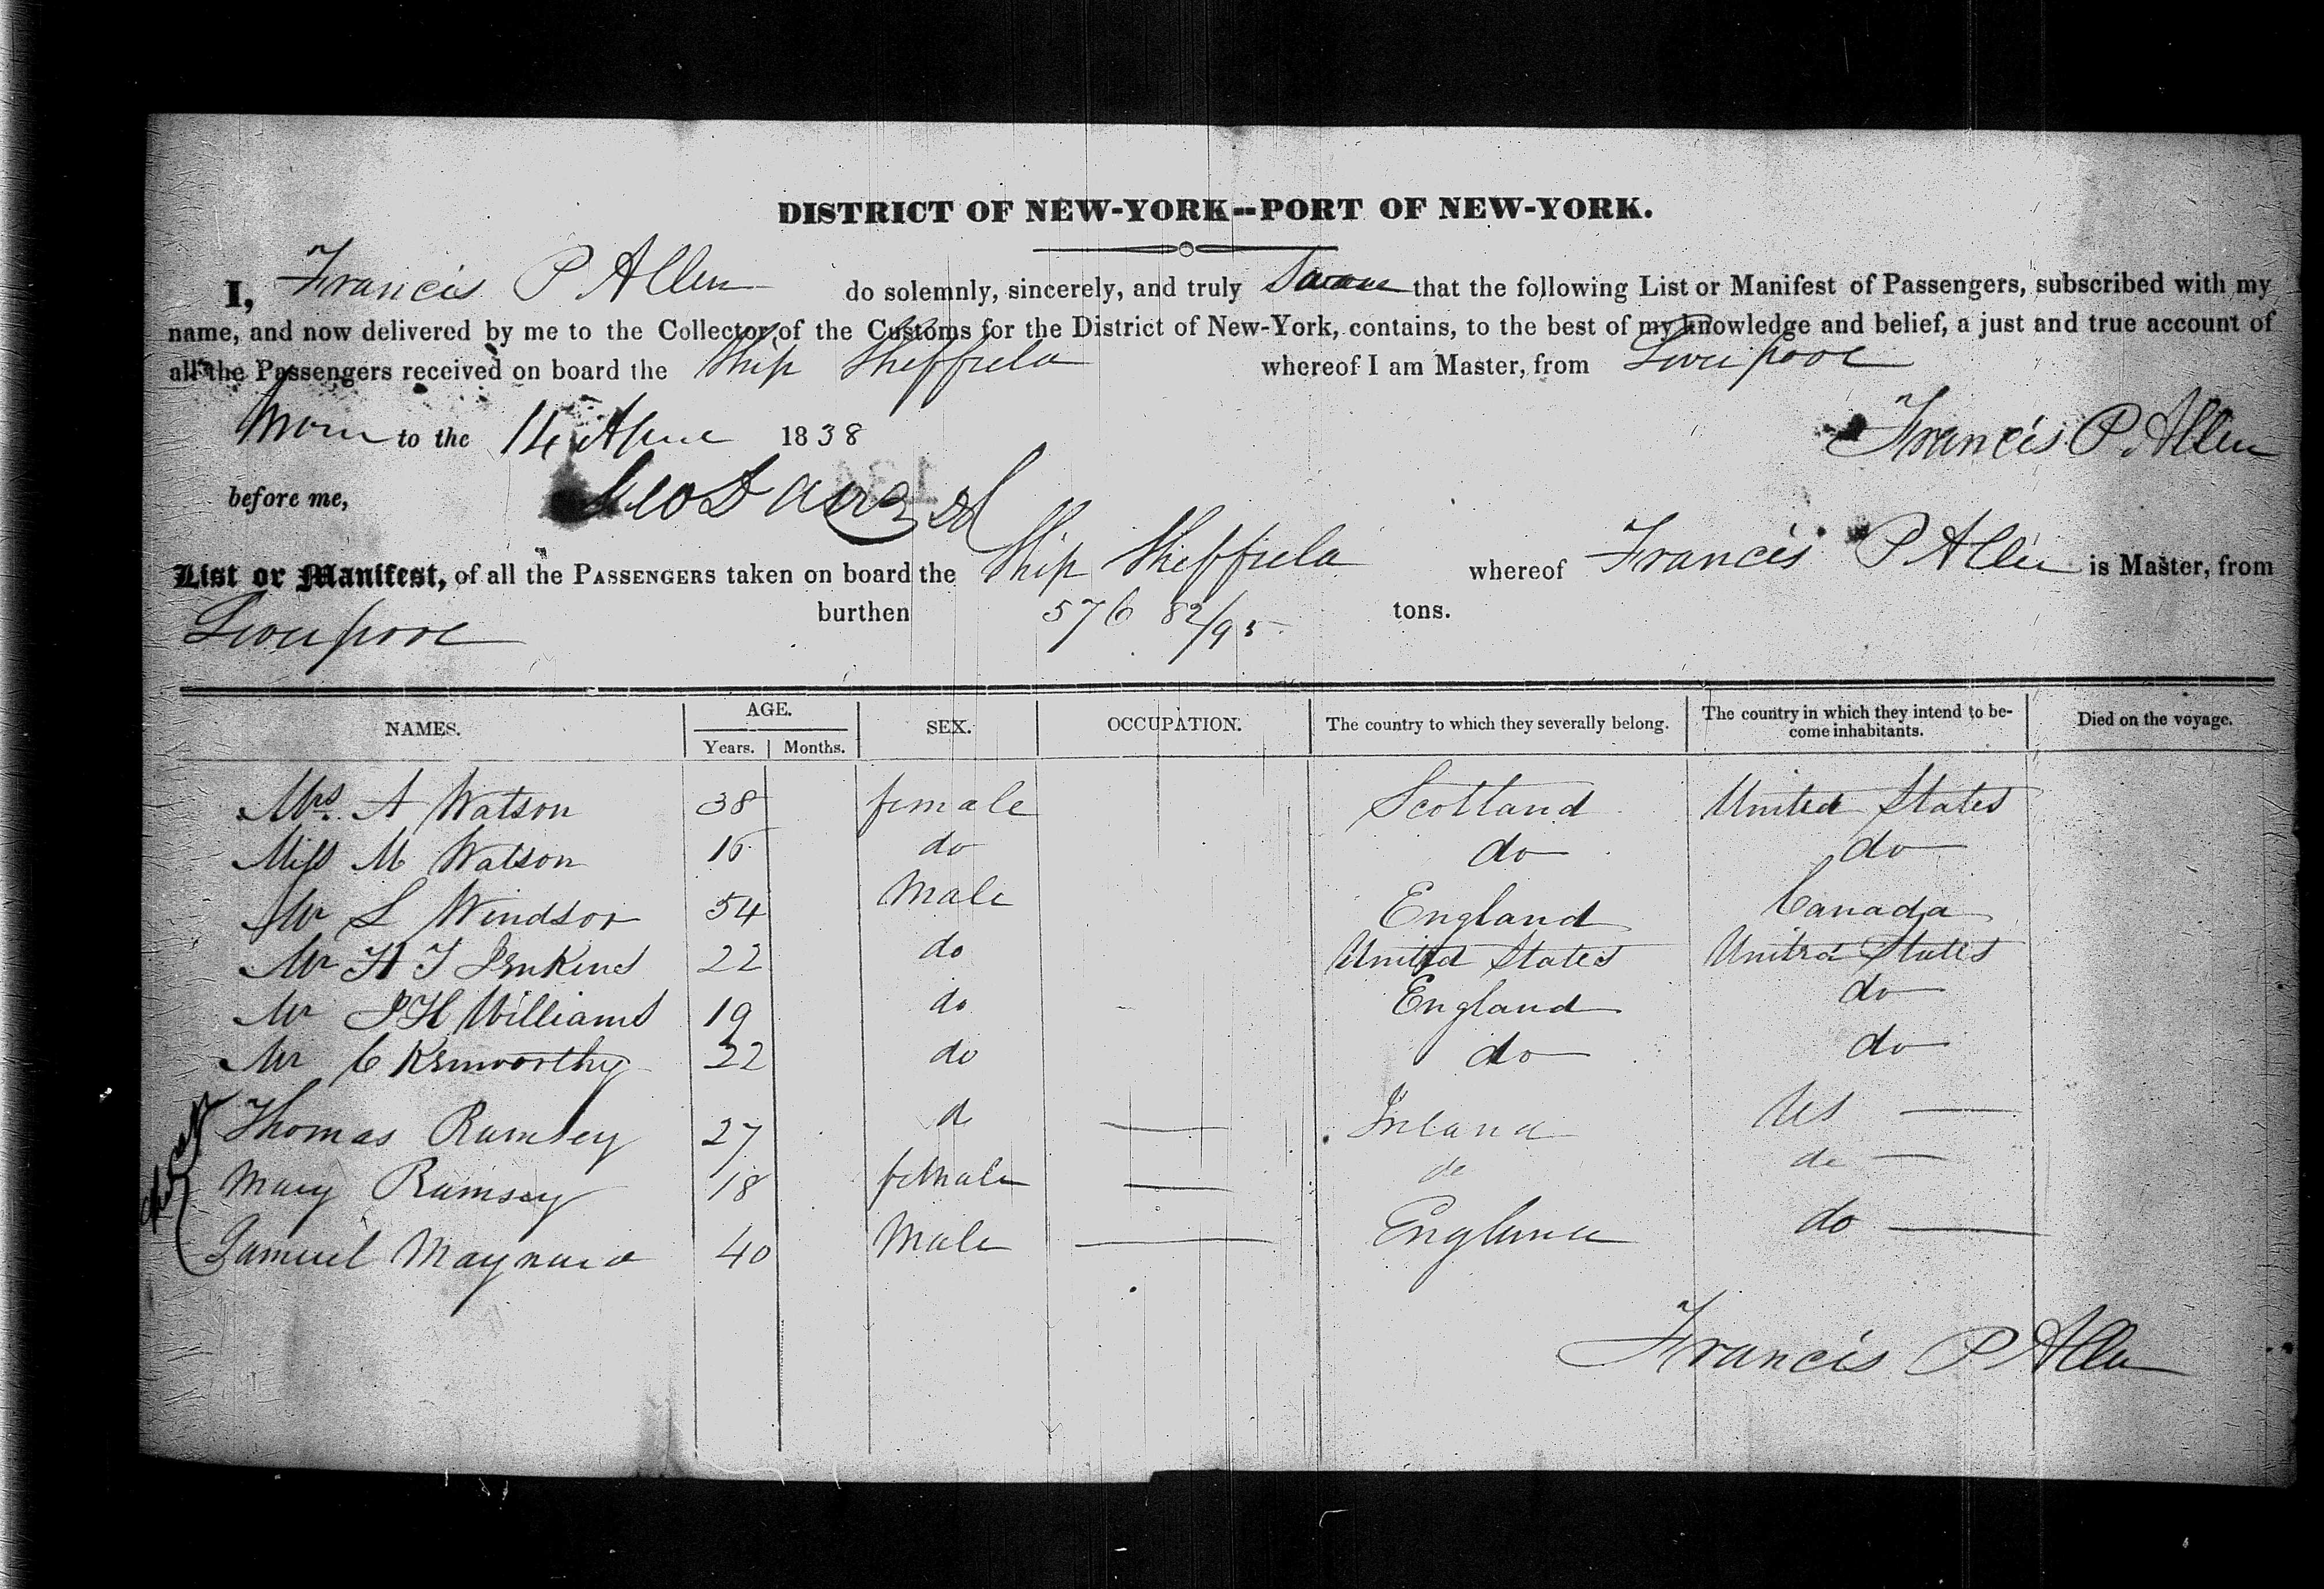 DISTRICT OF NEW-YORK--PORT OF NEW-YORK.
I, Francis P Allen do solemnly, sincerely, and truly Swear that the following List or Manifest of Passengers, subscribed with my
name, and now delivered by me to the Collector of the Customs for the District of New-York, contains, to the best of my knowledge and belief, a just and true account of
all the Passengers received on board the Ship Sheffield whereof I am Master, from Liverpool
Sworn to the 14 April 1838 Francis P. Allen
before me,
List or Manifest, of all the PASSENGERS taken on board the Ship Sheffield whereof Francis P Allen is Master, from
Liverpool burthen 576 82/95 tons.
NAMES. AGE. SEX. OCCUPATION. The country to which they severally belong. The country in which they intend to be-
come inhabitants. Died on the voyage.
Years. Months.
Mrs. A Watson 38 female Scotland United States
Miss M Watson do do do
Mr L Windsor 54 Male England Canada
Mr H T Jenkins 22 do United States United States
Mr J H Williams 19 do England do
Mr C Kenworthy 22 do do do
Thomas Ramsey 27 d Ireland US
Mary Ramsey 18 female do do
Samuel Maynard 40 Male England do
Francis P Allen